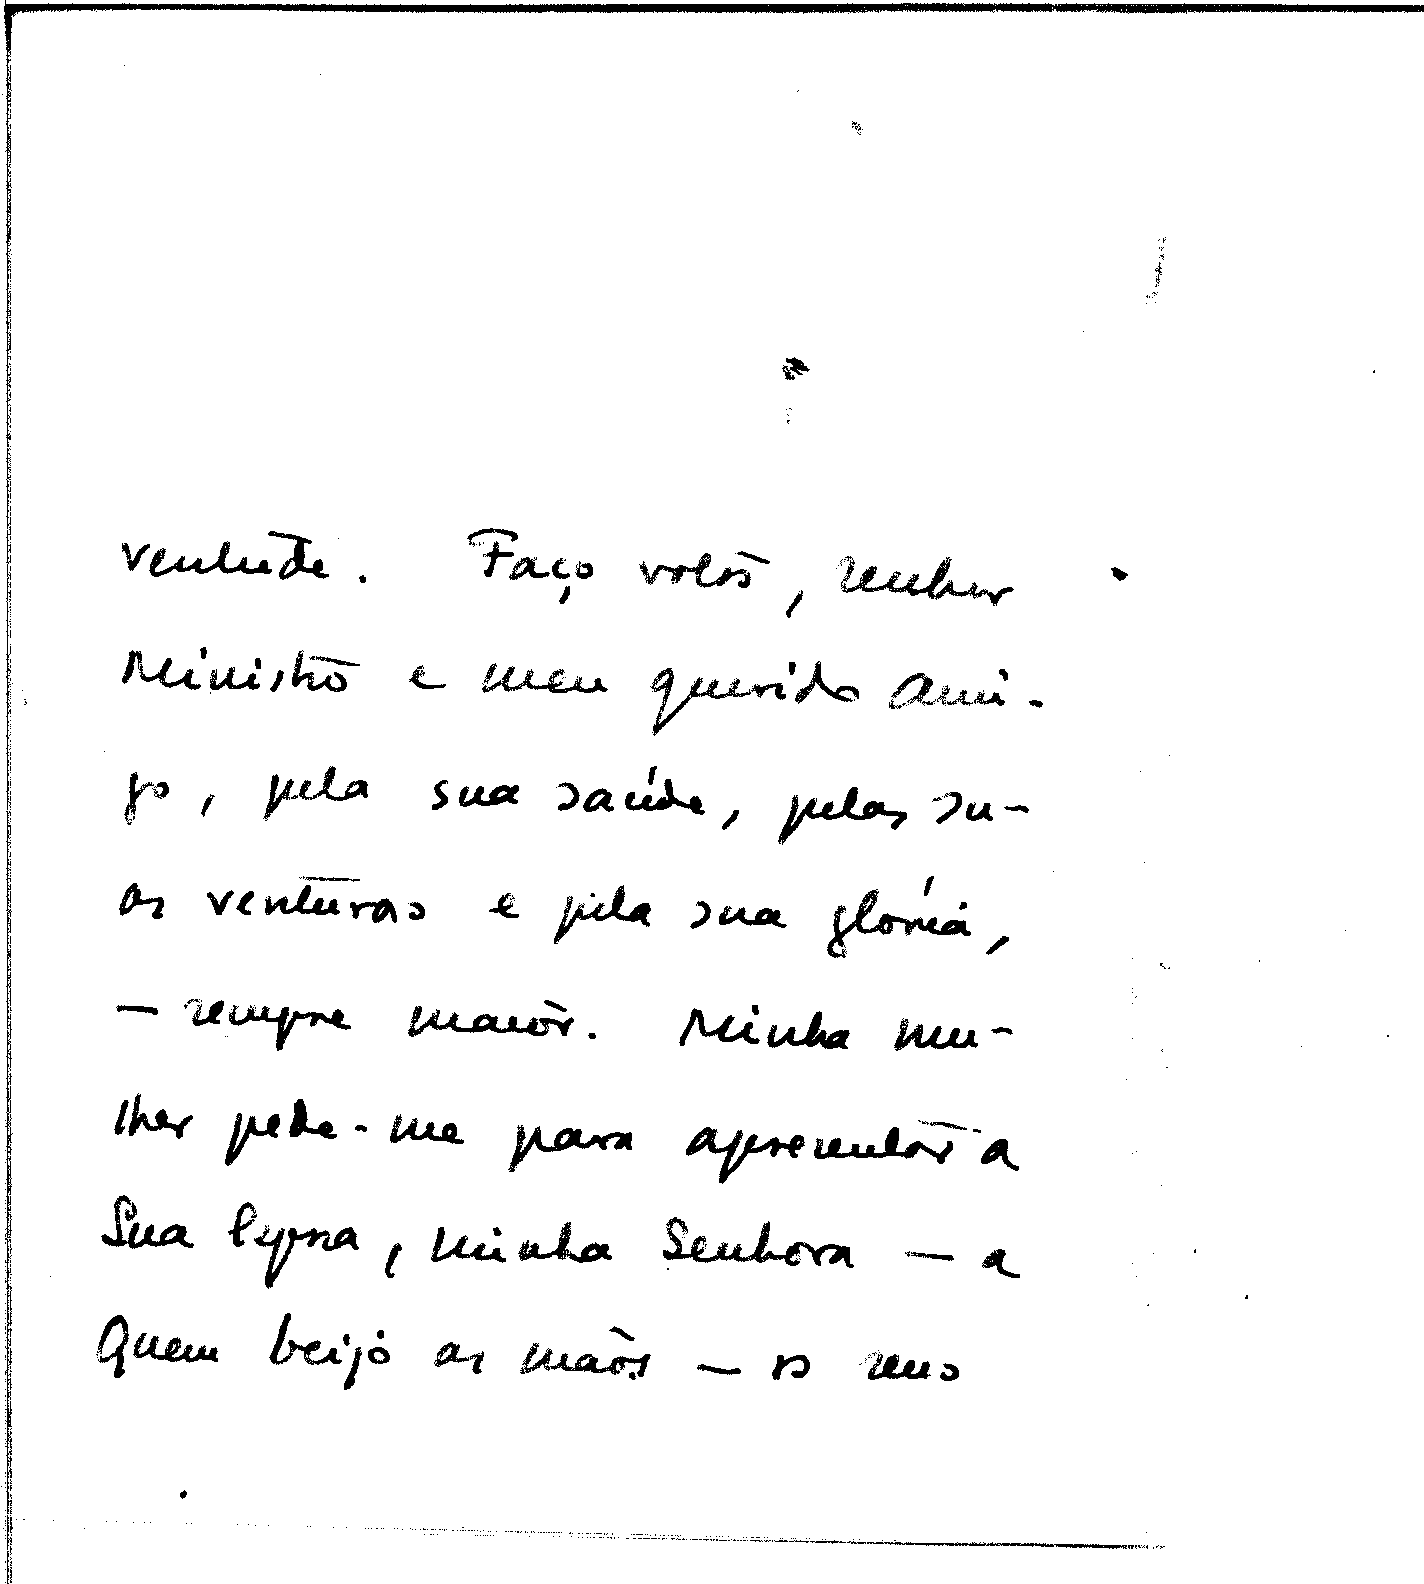 ventude. Faço votos, senhor
Ministro e meu querido ami-
go, pela sua saúde, pelas su-
as venturas e pela sua glória,
— sempre maior. Minha mu-
lher pede-me para apresentar a
Sua Espsa, minha Senhora — a
Quem beijo as mãos — os seus